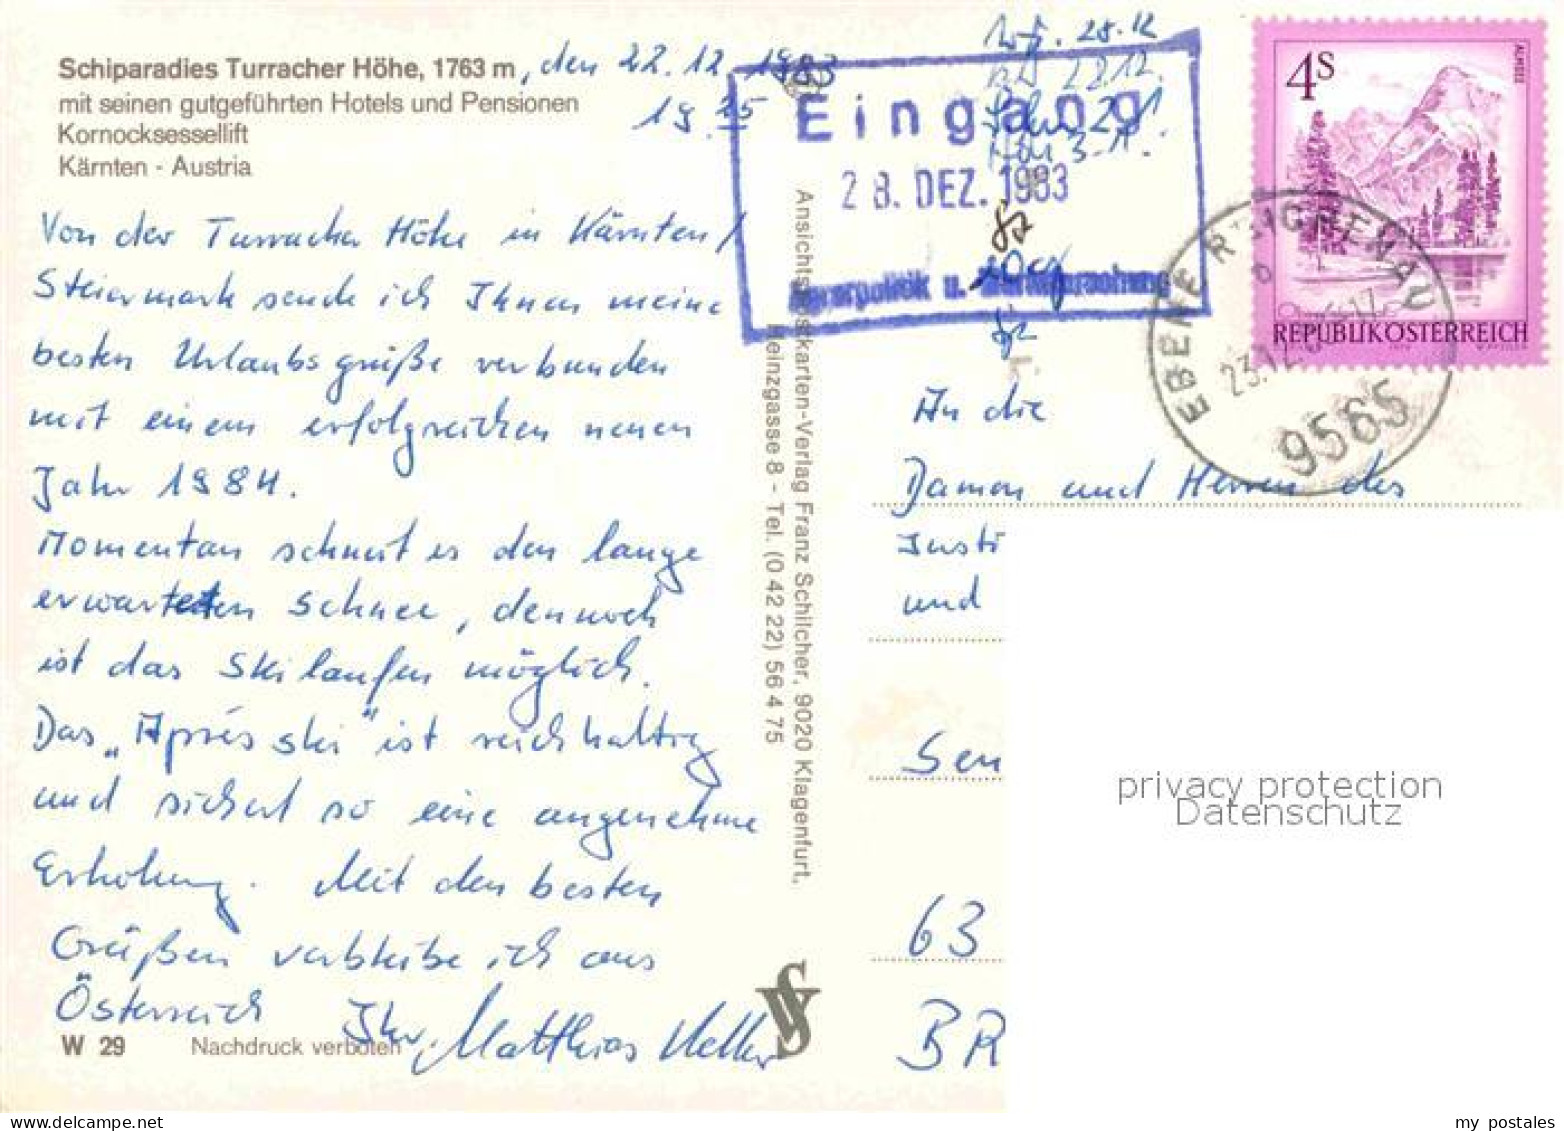 Schiparadies Turracher Höhe, 1763 m, den 22.12.1983
mit seinen gutgeführten Hotels und Pensionen
19.25
Kornocksessellift
Kärnten - Austria
Von der Turracher Höhe in Kärnten/
Steiermark sende ich Ihnen meine
besten Urlaubsgrüße verbunden
mit einem erfolgreichen neuen
Jahr 1984.
Momentan schneit es den lange
erwarteten Schnee, dennoch
ist das Skilaufen möglich.
Das „Après ski" ist reichhaltig
und sichert so eine angenehme
Erholung. Mit den besten
Grüßen verbleibe ich aus
Österreich Ihr Matthias
W 29
Nachdruck verboten
Ansichtspostkarten-Verlag Franz Schilcher, 9020 Klagenfurt,
Heinzgasse 8 - Tel. (0 42 22) 56 4 75
28.12
22.12.
3.1.
Eingang
28. DEZ. 1983
Agrarpolitik u. Marktforschung
4S
ALMSEE
REPUBLIK ÖSTERREICH
EBENE REICHENAU
23.12.8
9565
An die
Damen und Herren des
Insti
und
Sen
63
BR
privacy protection
Datenschutz
my postales